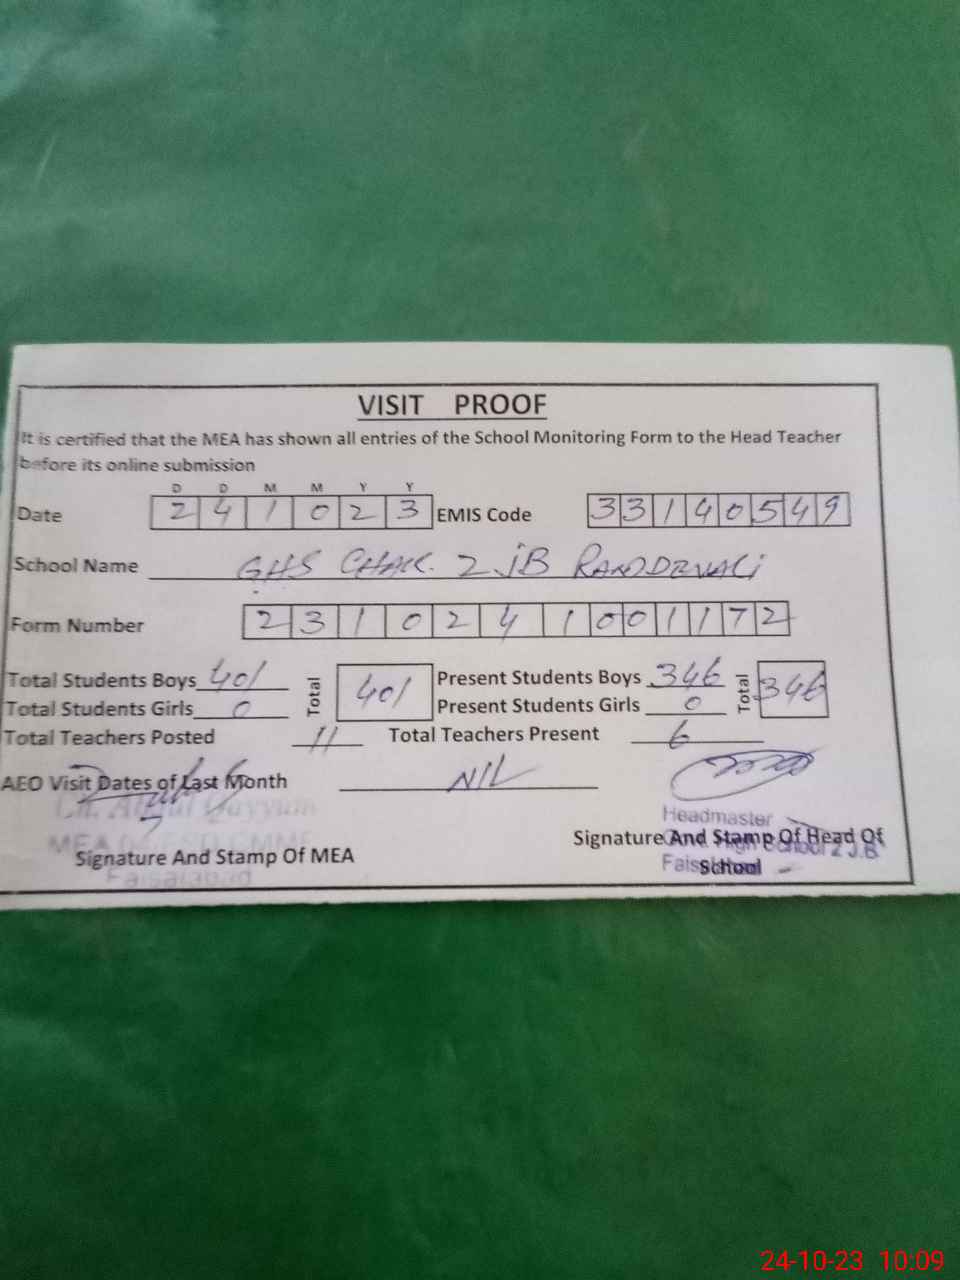 VISIT PROOF
It is certified that the MEA has shown all entries of the School Monitoring Form to the Head Teacher
before its online submission
D D M M Y Y
Date 2 4 1 0 2 3 EMIS Code 3 3 1 4 0 5 4 9
School Name GHS CHAK. 2 JB
Form Number 2 3 1 0 2 4 1 0 0 1 1 7 2
Total Students Boys 401 Total 401 Present Students Boys 346 Total 346
Total Students Girls 0 Present Students Girls 0
Total Teachers Posted 11 Total Teachers Present 6
AEO Visit Dates of Last Month NIL
Headmaster
High School 2 J.B
Signature And Stamp Of Head Of
School
MEA
Signature And Stamp Of MEA
Faisalabad
24-10-23 10:09